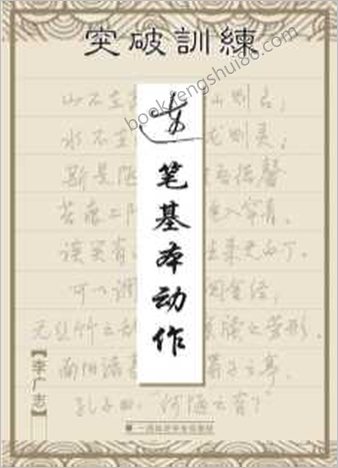 突破訓練
bookfengshui86.com
连笔基本动作
山不在 则名，
水不在 则灵，
斯是陋 德馨
苔痕上 入帘青，
谈笑有 来无白丁。
可以调 金经，
无丝竹之乱 牍之劳形。
南阳诸葛 子云亭。
孔子曰：“何陋之有？”
【李广志】